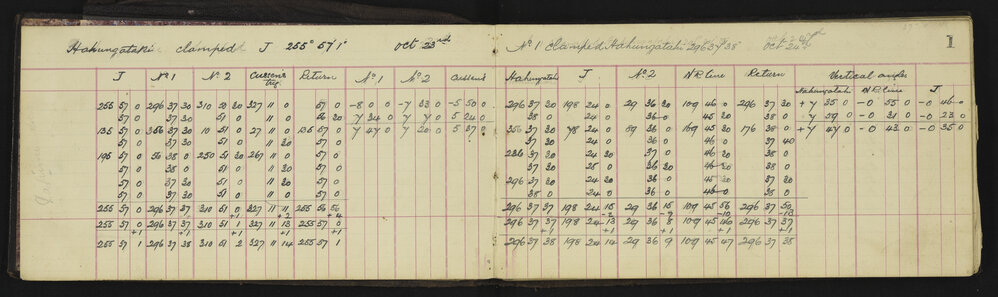 Hakungataki clamped J 255° 57' 1" Oct 23rd
J No 1 No 2 Cussen's trig Return No 1 No 2 Cussen's
255 57 0 296 37 30 310 50 30 327 11 0 57 0 -8 0 0 -7 33 0 -5 50 0
57 0 37 30 51 0 11 0 56 30 7 34 0 7 7 0 5 24 0
135 57 0 356 37 30 10 51 0 27 11 0 135 57 0 -7 47 0 7 20 0 5 37 0
57 0 37 30 51 0 11 30 57 0
195 57 0 56 38 0 250 51 30 267 11 0 57 0
57 0 38 0 51 0 11 30 57 0
57 0 37 30 51 0 11 30 57 0
57 0 37 30 51 0 11 0 57 0
255 57 0 296 37 37 310 51 0 327 11 11 255 56 56
+1 +2 +4
255 57 0 296 37 37 310 51 1 327 11 13 255 57 0
+1 +1 +1 +1 +1
255 57 1 296 37 38 310 51 2 327 11 14 255 57 1
No 1 clamped Hakungataki 296 37 38 Oct 24th
1
Hakungataki J No 2 NR Line Return Vertical angles
Hakungataki NR Line J
296 37 30 198 24 0 29 36 30 109 46 0 296 37 30 +7 35 0 -0 55 0 -0 46 0
38 0 24 0 36 0 45 30 38 0 7 59 0 -0 31 0 -0 23 0
356 37 30 78 24 0 89 36 0 169 45 30 176 38 0 +7 47 0 -0 43 0 -0 35 0
37 30 24 0 36 0 46 30 37 40
236 37 30 24 30 37 0 46 30 38 0
37 30 25 0 36 30 46 0 38 0
296 37 30 24 30 36 0 45 30 37 30
38 0 24 0 36 0 45 0 38 0
296 37 37 198 24 15 29 36 15 109 45 56 296 37 50
-2 -7 -10 -13
296 37 37 198 24 13 29 36 8 109 45 46 296 37 37
+1 +1 +1 +1 +1
296 37 38 198 24 14 29 36 9 109 45 47 296 37 38